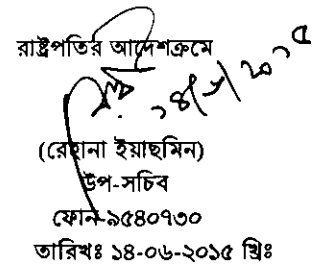 রাষ্ট্রপতির আদেশক্রমে
১৪/৬/২০১৫
(রেহানা ইয়াছমিন)
উপ-সচিব
ফোন-৯৫৪০৭৩০
তারিখঃ ১৪-০৬-২০১৫ খ্রিঃ